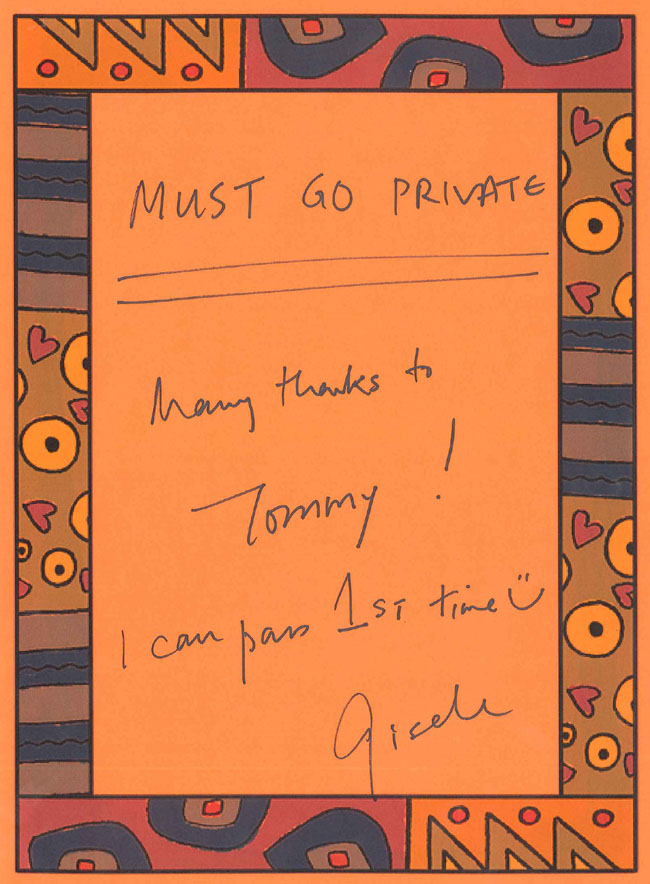 MUST GO PRIVATE
Many thanks to
Tommy !
I can pass 1ST time
Gisele